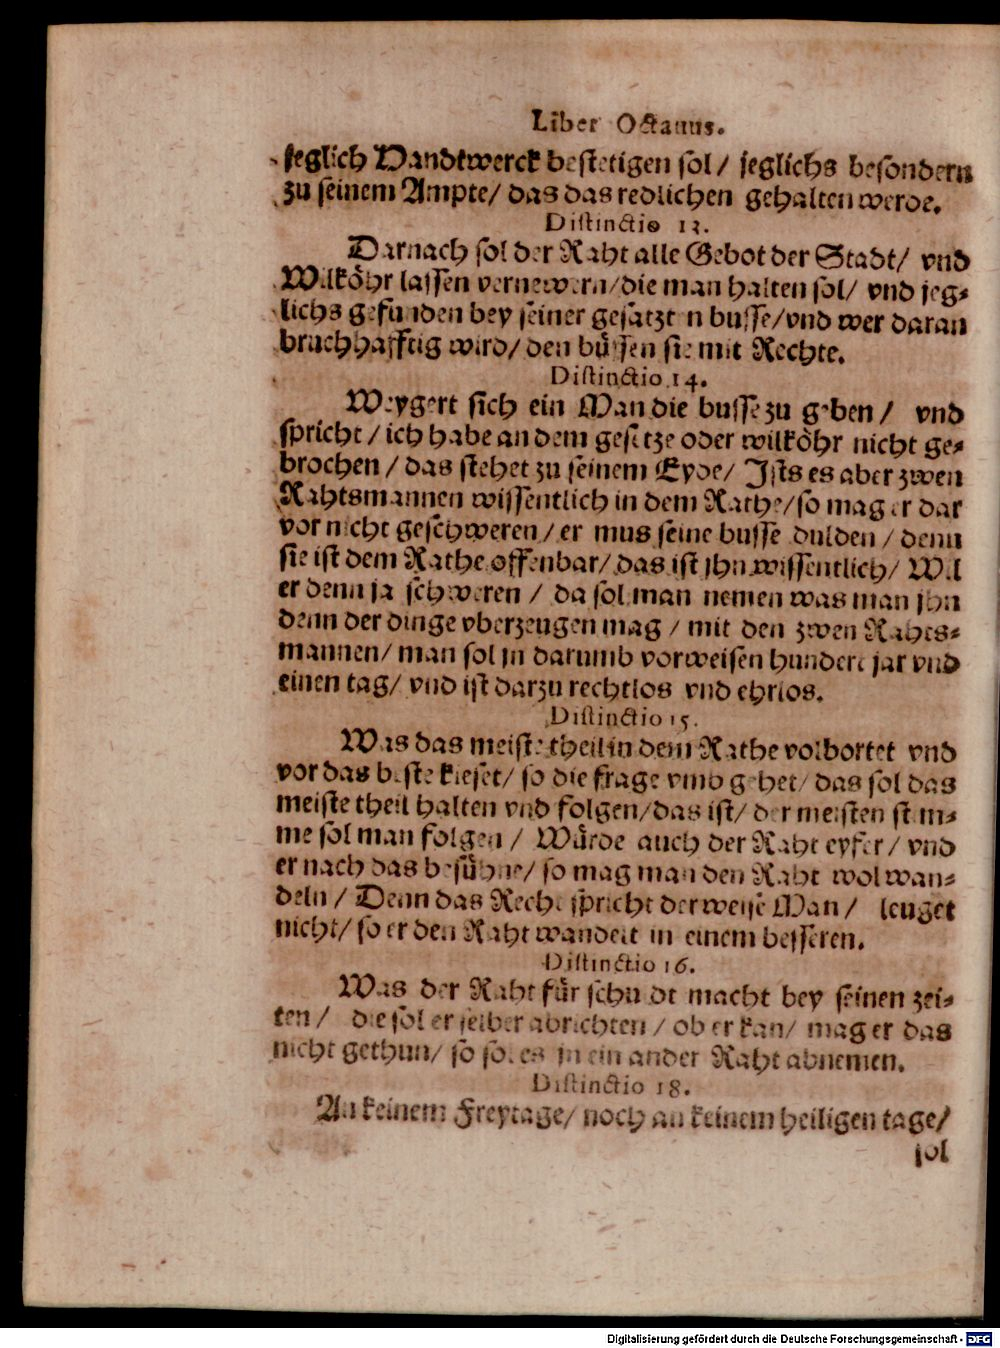 Liber Octauus.
jeglich Handtwerck bestetigen sol/ jeglichs besondern
zu seinem Ampte/ das das redlichen gehalten werde.
Distinctio 13.
Darnach sol der Raht alle Gebot der Stadt/ vnd
Wilköhr lassen vernewern/ die man halten sol/ vnd jeg-
lichs gefunden bey seiner gesatzten busse/ vnd wer daran
bruchhafftig wird/ den büssen sie mit Rechte.
Distinctio 14.
Weygert sich ein Man die busse zu geben/ vnd
spricht/ ich habe an dem gesetze oder wilköhr nicht ge-
brochen/ das stehet zu seinem Eyde/ Ists es aber zwen
Rahtsmannen wissentlich in dem Rathe/ so mag er dar
vor nicht geschweren/ er mus seine busse dulden/ denn
sie ist dem Rathe offenbar/ das ist jhn wissentlich/ Wil
er denn ja schweren/ da sol man nemen was man jhn
denn der dinge vberzeugen mag/ mit den zwen Rahts-
mannen/ man sol jn darumb vorweisen hundert jar vnd
einen tag/ vnd ist darzu rechtlos vnd ehrlos.
Distinctio 15.
Was das meiste theil in dem Rathe volbortet vnd
vor das beste kieset/ so die frage vmb gehet/ das sol das
meiste theil halten vnd folgen/ das ist/ der meisten stim-
me sol man folgen/ Würde auch der Raht eyfer/ vnd
er nach das besühne/ so mag man den Raht wol wan-
deln/ Denn das Recht spricht der weise Man/ leuget
nicht/ so er den Raht wandelt in einem besseren.
Distinctio 16.
Was der Raht für schuldt macht bey seinen zei-
ten/ die sol er selber abrichten/ ob er kan/ mag er das
nicht gethun/ so sol es jn ein ander Raht abnemen.
Distinctio 18.
An keinem Freytage/ noch an keinem heiligen tage/
sol
Digitalisierung gefördert durch die Deutsche Forschungsgemeinschaft - DFG